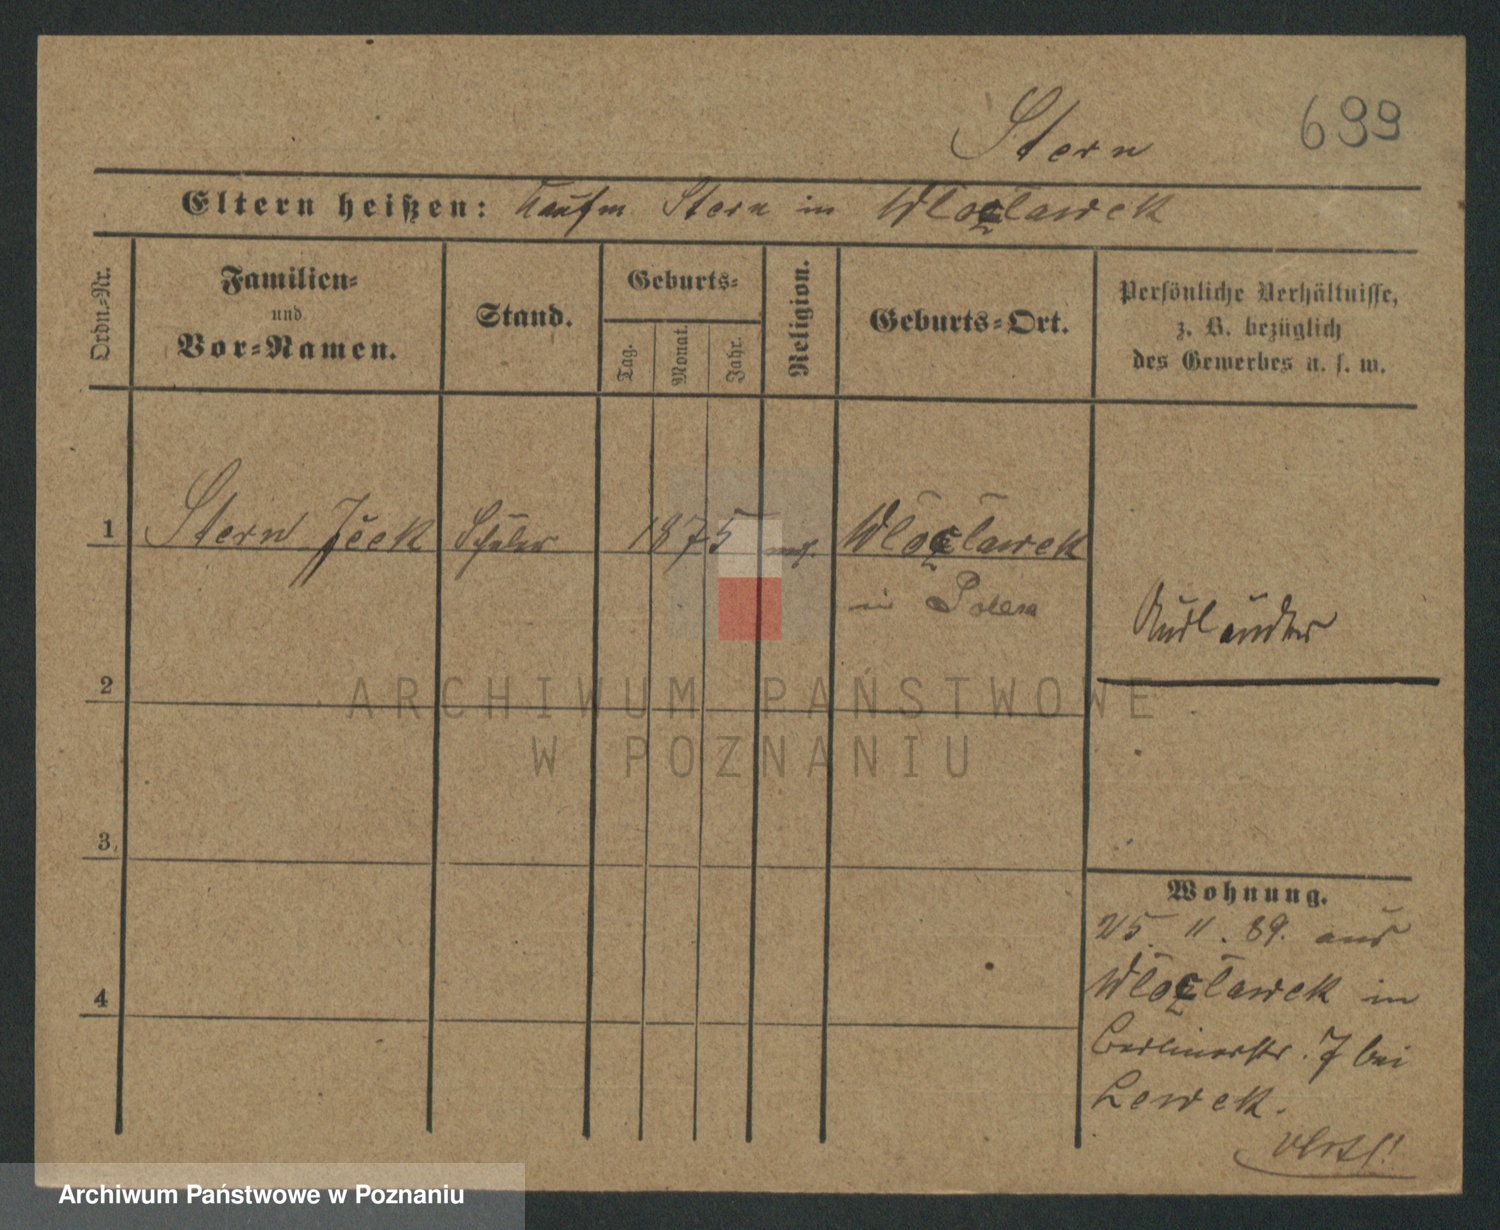 Stern 699
Eltern heißen: Kaufm Stern in Wloclawek
Ordn.-Nr.
Familien-
und
Vor-Namen.
Stand.
Geburts-
Tag.
Monat.
Jahr.
Religion.
Geburts-Ort.
Persönliche Verhältnisse,
z. B. bezüglich
des Gewerbes u. s. w.
1 Stern Schüler 1875 mos. Wloclawek
in Polen
Ausländer
2
3
4
Wohnung.
25. 11. 89. aus
Wloclawek in
Berlinerstr. 7 bei
Lewek.
ARCHIWUM PAŃSTWOWE
W POZNANIU
Archiwum Państwowe w Poznaniu